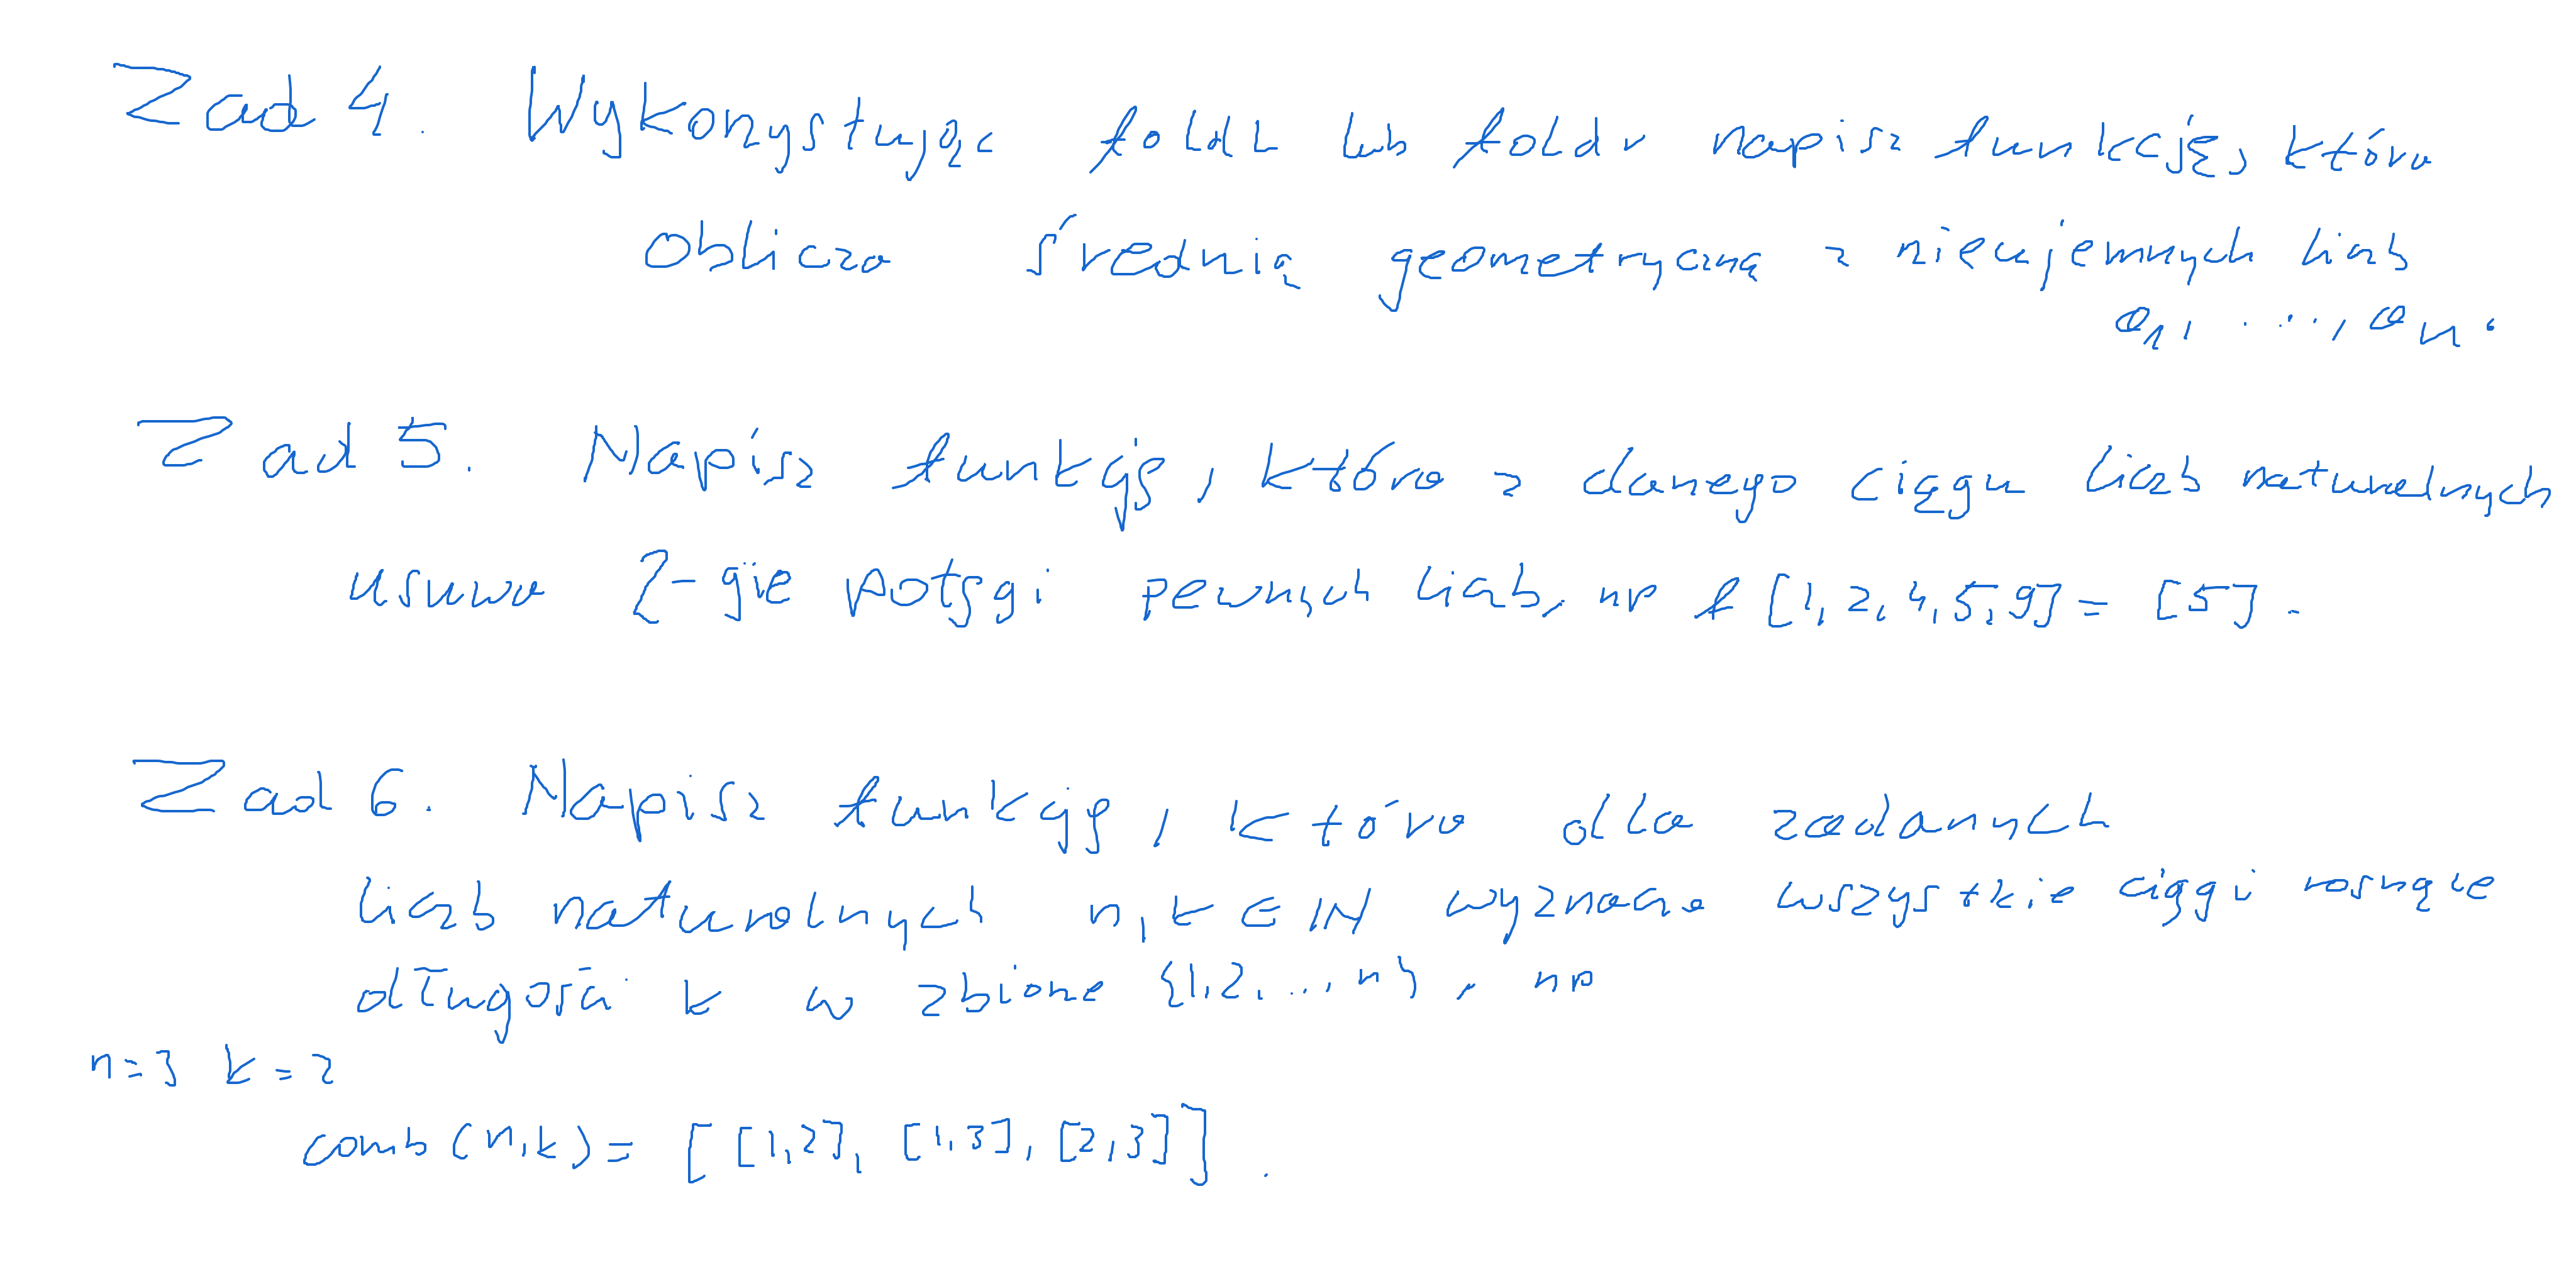 Zad 4. Wykorzystując foldl lub foldr napisz funkcję, która
oblicza średnią geometryczną z nieujemnych liczb
a₁, ..., aₙ.
Zad 5. Napisz funkcję, która z danego ciągu liczb naturalnych
usuwa 2-gie potęgi pewnych liczb, np f [1, 2, 4, 5, 9] = [5].
Zad 6. Napisz funkcję, która dla zadanych
liczb naturalnych n, k ∈ ℕ wyznacza wszystkie ciągi rosnące
długości k w zbiorze {1, 2, ..., n}, np
n = 3 k = 2
comb (n, k) = [[1, 2], [1, 3], [2, 3]].